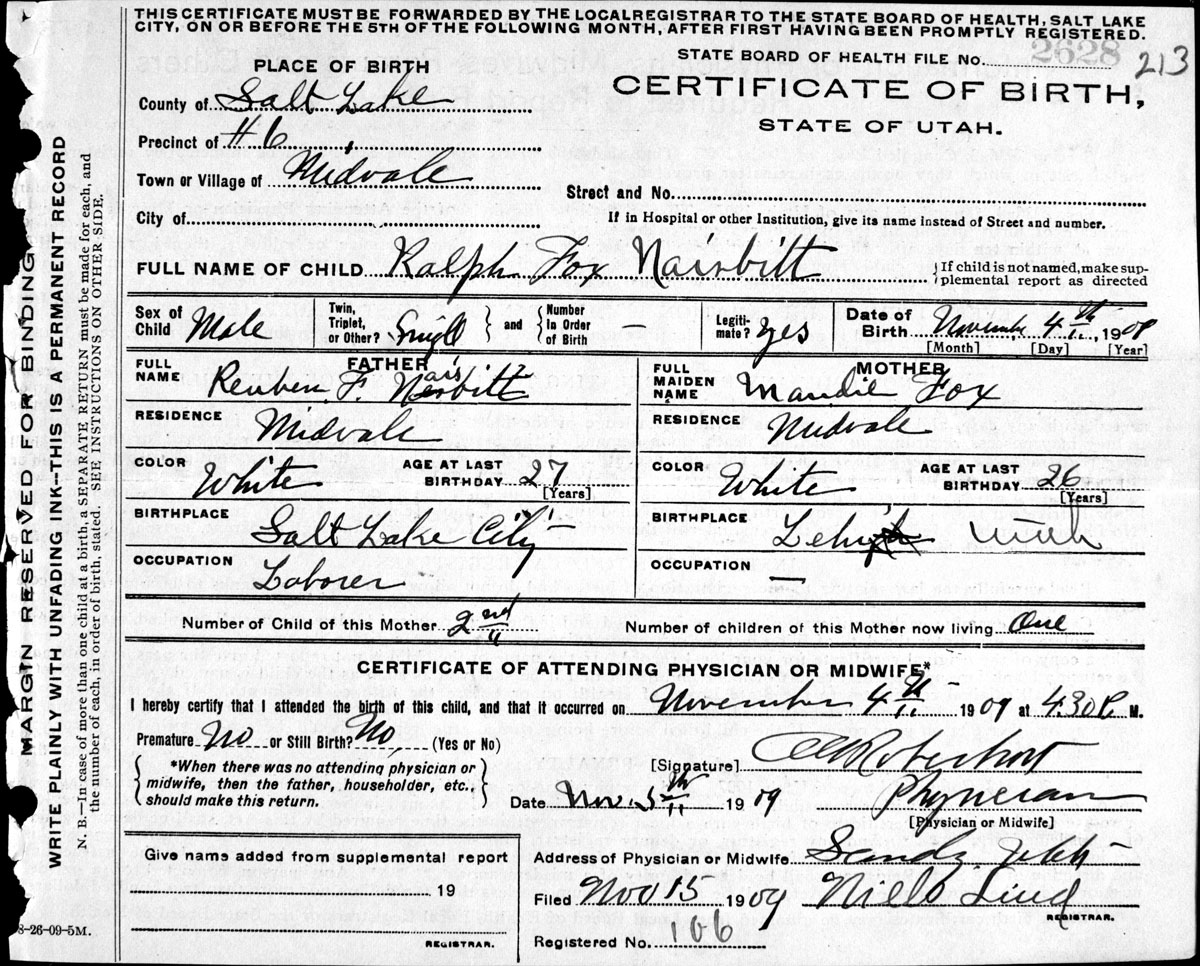 THIS CERTIFICATE MUST BE FORWARDED BY THE LOCAL REGISTRAR TO THE STATE BOARD OF HEALTH, SALT LAKE
CITY, ON OR BEFORE THE 5TH OF THE FOLLOWING MONTH, AFTER FIRST HAVING BEEN PROMPTLY REGISTERED.
STATE BOARD OF HEALTH FILE No. 2628 213
PLACE OF BIRTH
CERTIFICATE OF BIRTH,
STATE OF UTAH.
County of Salt Lake
Precinct of #6
Town or Village of Midvale
Street and No.
City of
If in Hospital or other Institution, give its name instead of Street and number.
FULL NAME OF CHILD Ralph Fox Naisbitt
If child is not named, make sup-
plemental report as directed
Sex of Child Male Twin, Triplet, or Other? Singl and Number In Order of Birth — Legiti-mate? yes Date of Birth November 4th, 1909
[Month] [Day] [Year]
FATHER
FULL NAME Reuben F. Naisbitt
RESIDENCE Midvale
COLOR White AGE AT LAST BIRTHDAY 27
[Years]
BIRTHPLACE Salt Lake City
OCCUPATION Laborer
MOTHER
FULL MAIDEN NAME Maudie Fox
RESIDENCE Midvale
COLOR White AGE AT LAST BIRTHDAY 26
[Years]
BIRTHPLACE Lehi Utah
OCCUPATION —
Number of Child of this Mother 2nd Number of children of this Mother now living One
CERTIFICATE OF ATTENDING PHYSICIAN OR MIDWIFE*
I hereby certify that I attended the birth of this child, and that it occurred on November 4th 1909 at 4.30 P. M.
Premature No or Still Birth? No (Yes or No)
*When there was no attending physician or
midwife, then the father, householder, etc.,
should make this return.
[Signature] Robertson
Date Nov. 5th 1909 Physician
[Physician or Midwife]
Give name added from supplemental report
19
REGISTRAR.
Address of Physician or Midwife Sandy Utah
Filed Nov 15 1909 Nills Lind
REGISTRAR.
Registered No. 106
8-26-09-5M.
MARGIN RESERVED FOR BINDING
WRITE PLAINLY WITH UNFADING INK—THIS IS A PERMANENT RECORD
N. B.—In case of more than one child at a birth, a SEPARATE RETURN must be made for each, and
the number of each, in order of birth, stated. SEE INSTRUCTIONS ON OTHER SIDE.